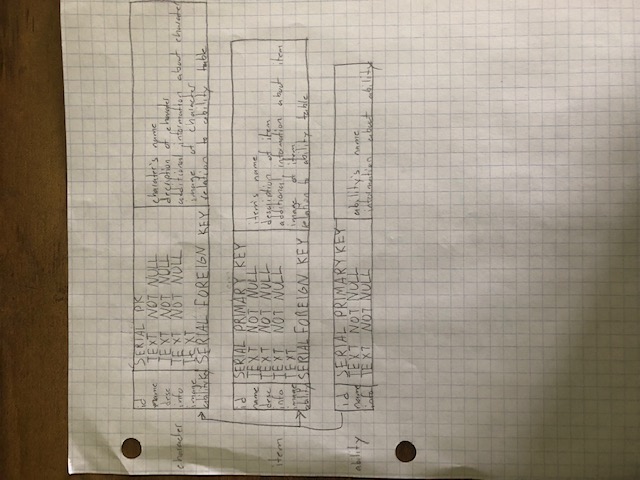 id SERIAL PK
name TEXT NOT NULL charater's name
desc TEXT NOT NULL decription of charater
character info TEXT NOT NULL additional information about character
image TEXT image of character
ability SERIAL FOREIGN KEY relation to ability table
id SERIAL PRIMARY KEY
name TEXT NOT NULL item's name
desc TEXT NOT NULL description of item
item info TEXT NOT NULL additional information about item
image TEXT image of item
ability SERIAL FOREIGN KEY relation to ability table
id SERIAL PRIMARY KEY
ability name TEXT NOT NULL ability's name
info TEXT NOT NULL information about ability